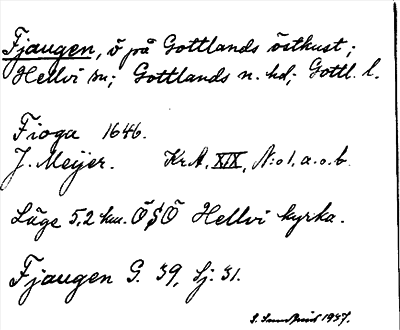 Fjaugen, ö på Gottlands östkust;
Hellvi sn; Gottlands n. hd; Gottl. l.
Fioga 1646.
J. Meijer. Kr.A, XIX, N:o 1, a.o.b.
Läge 5,2 km. ÖSÖ Hellvi kyrka.
Fjaugen G. 39, Sj. 31.
S. 1937.